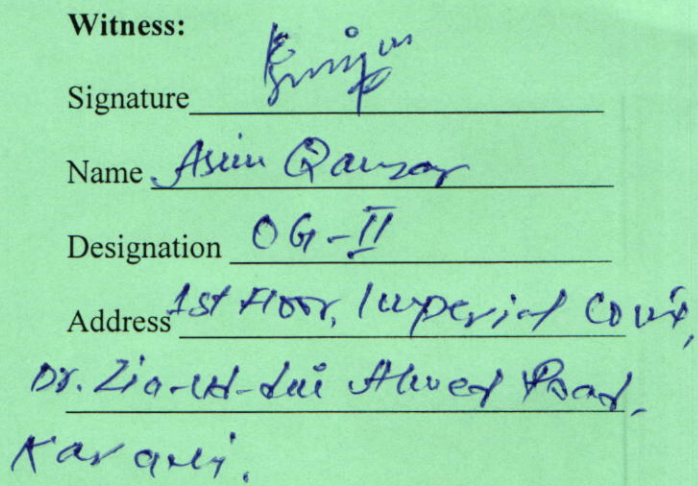 Witness:
Signature
Name Asim Qamar
Designation OG-II
Address 1st Floor, Imperial Court,
Dr. Zia-ud-din Ahmed Road,
Karachi.